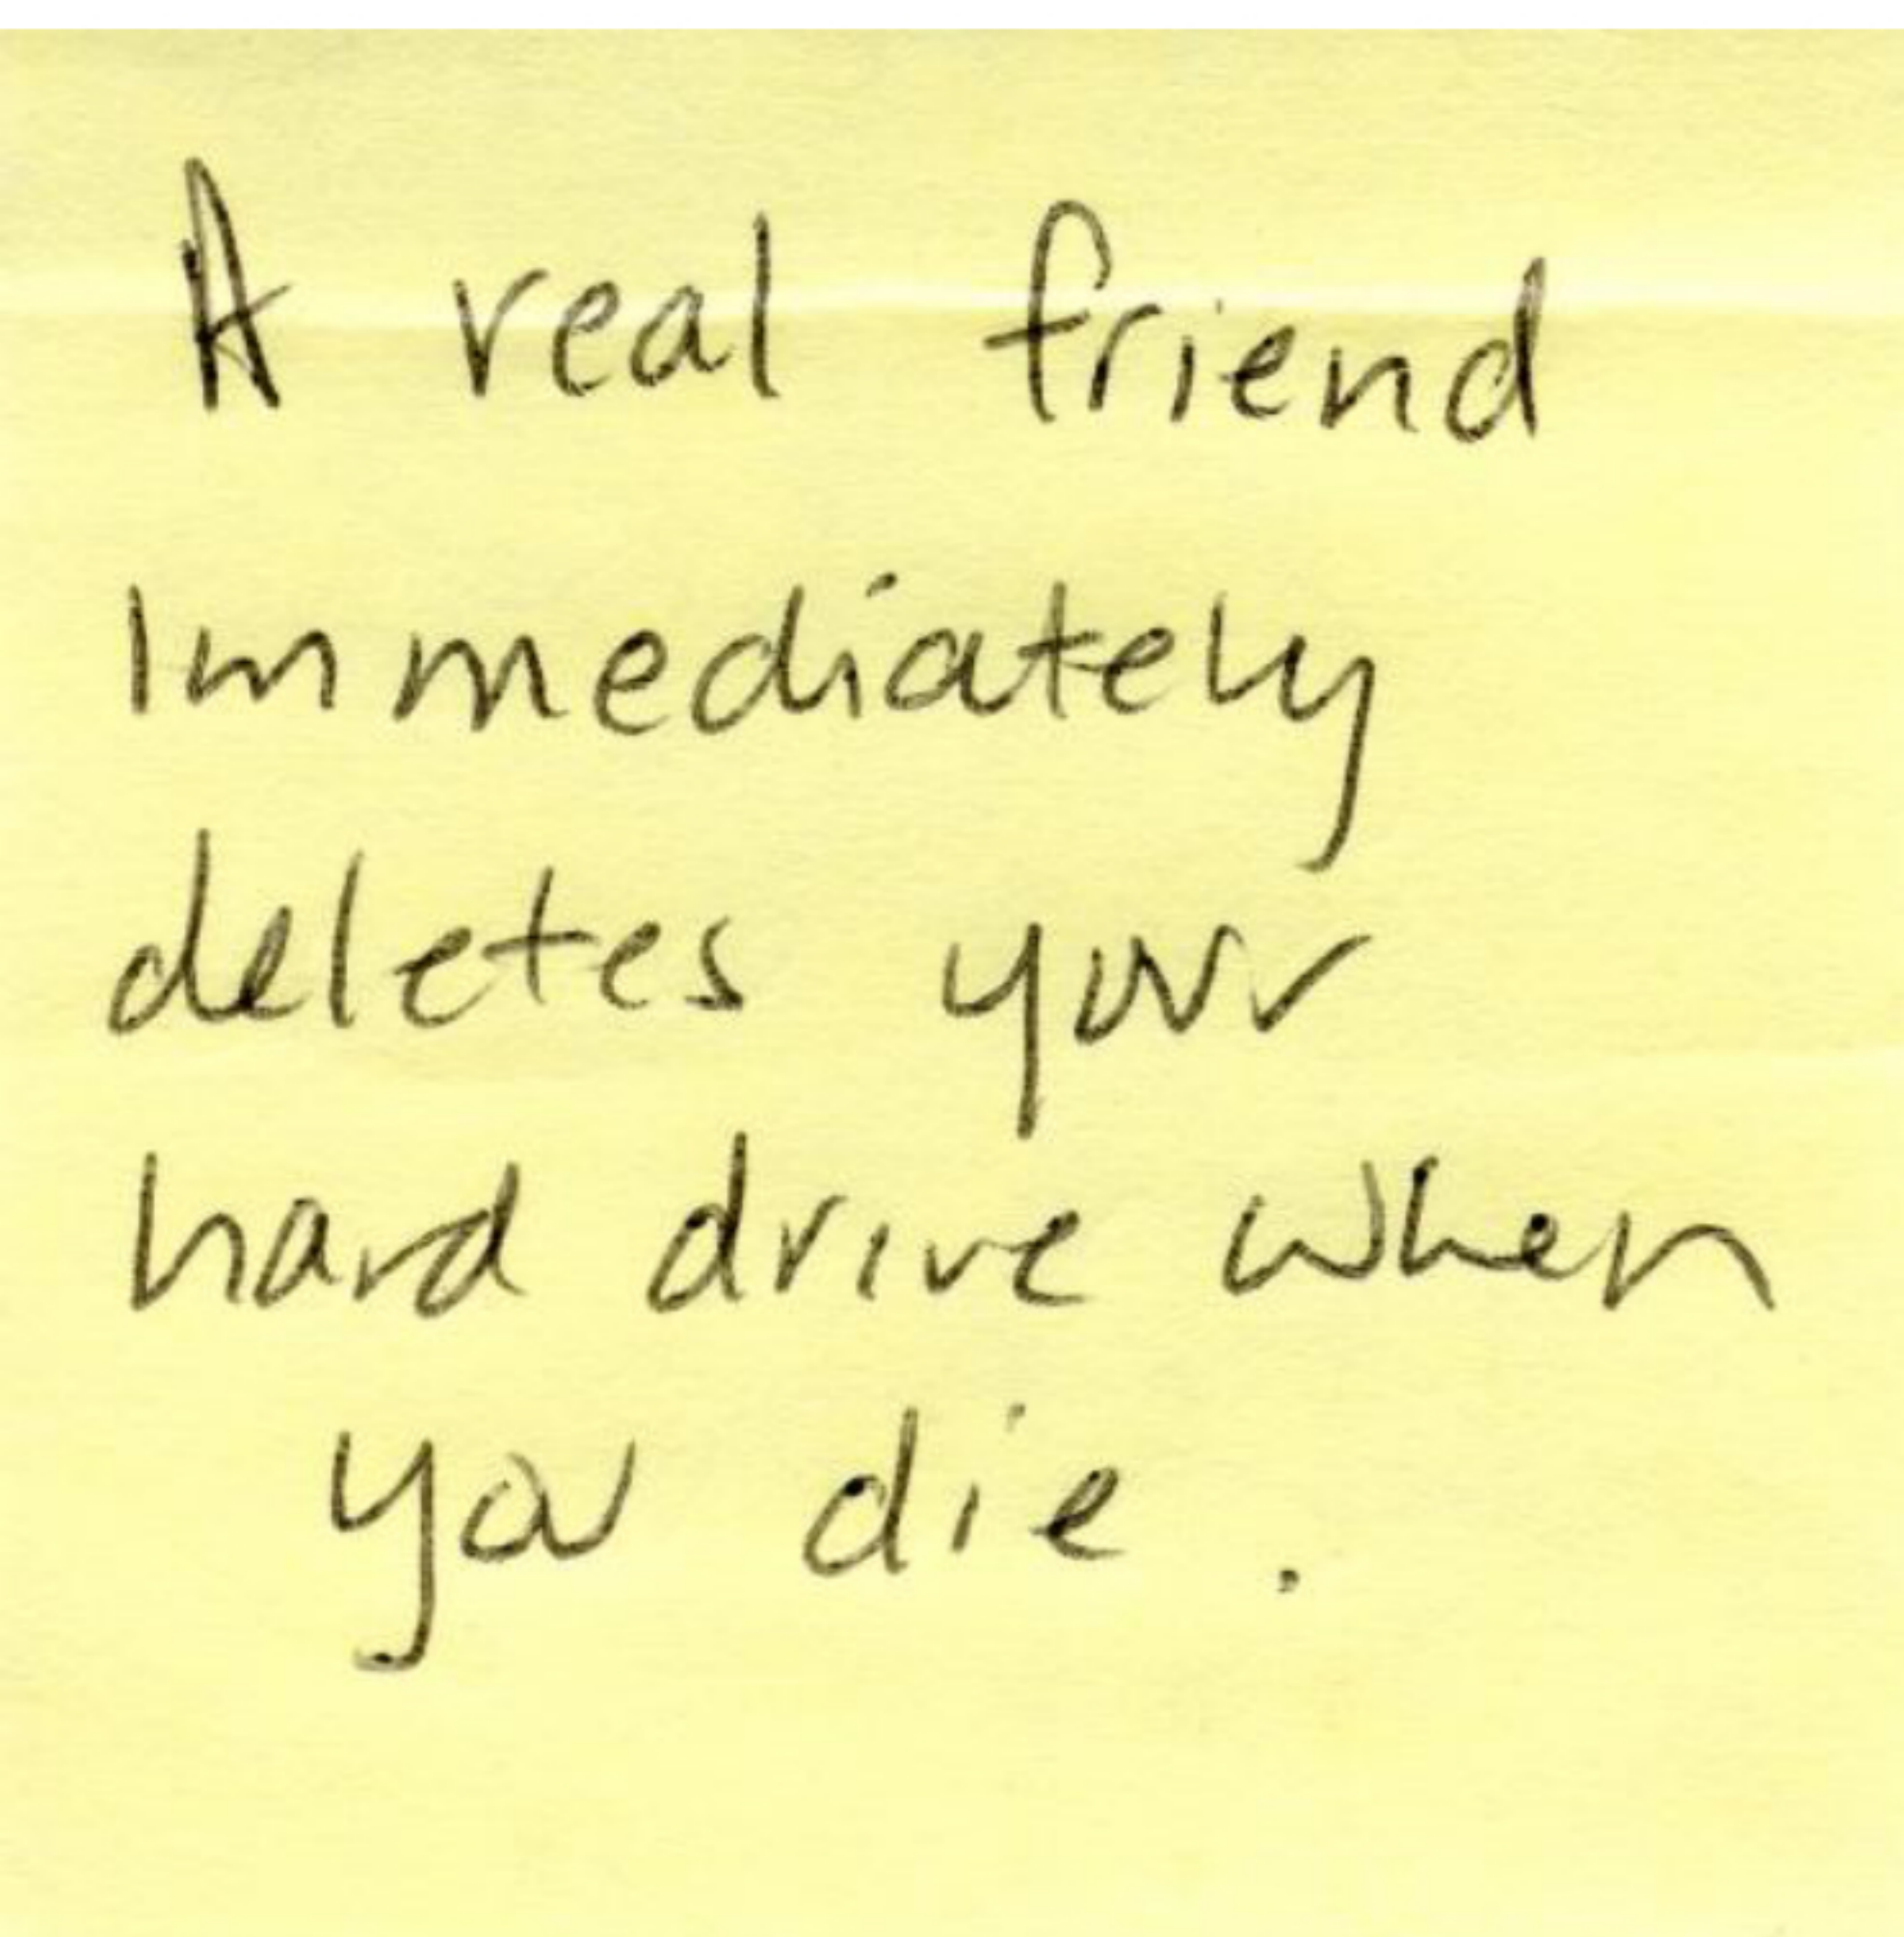 A real friend
Immediately
deletes your
hard drive when
you die.